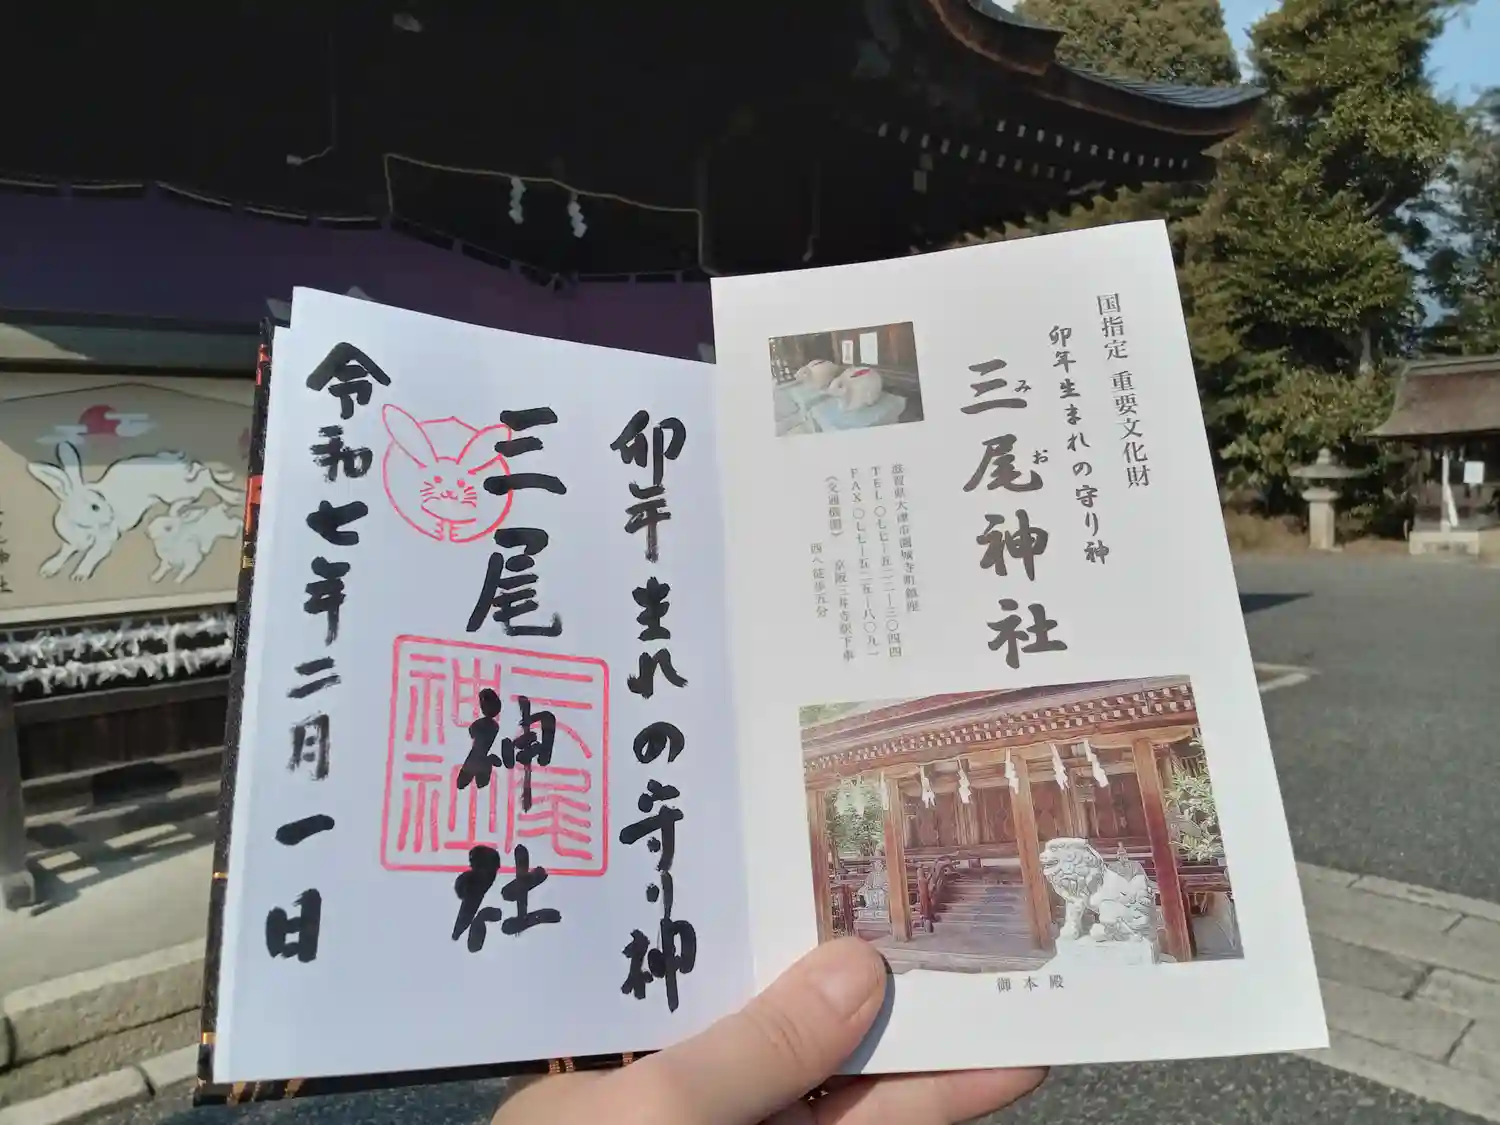 卯年生まれの守り神
三尾神社
令和七年二月一日
三尾神社
国指定 重要文化財
卯年生まれの守り神
三尾神社
み お
滋賀県大津市園城寺町鎮座
TEL〇七七-五二二-三〇四四
FAX〇七七-五二五-八〇九一
《交通機関》 京阪三井寺駅下車
西へ徒歩五分
御本殿
神社